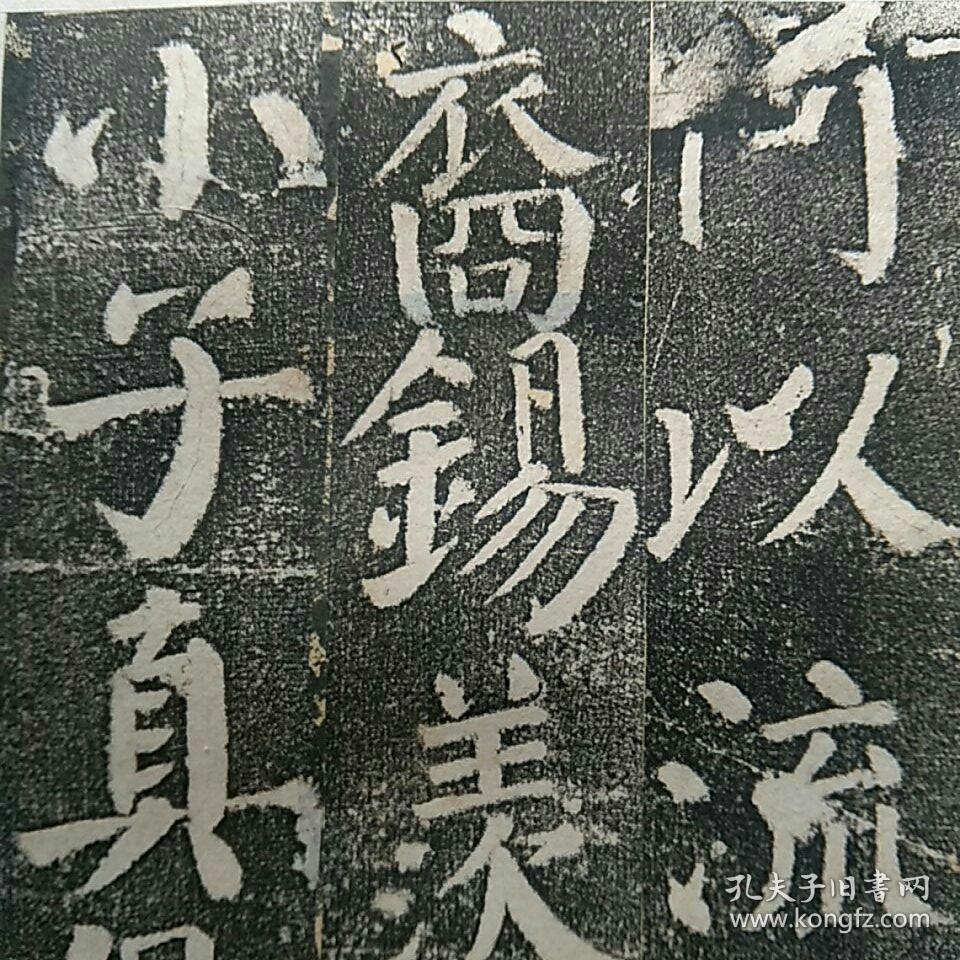 以流
裔錫羡
小子真
孔夫子旧書网
www.kongfz.com